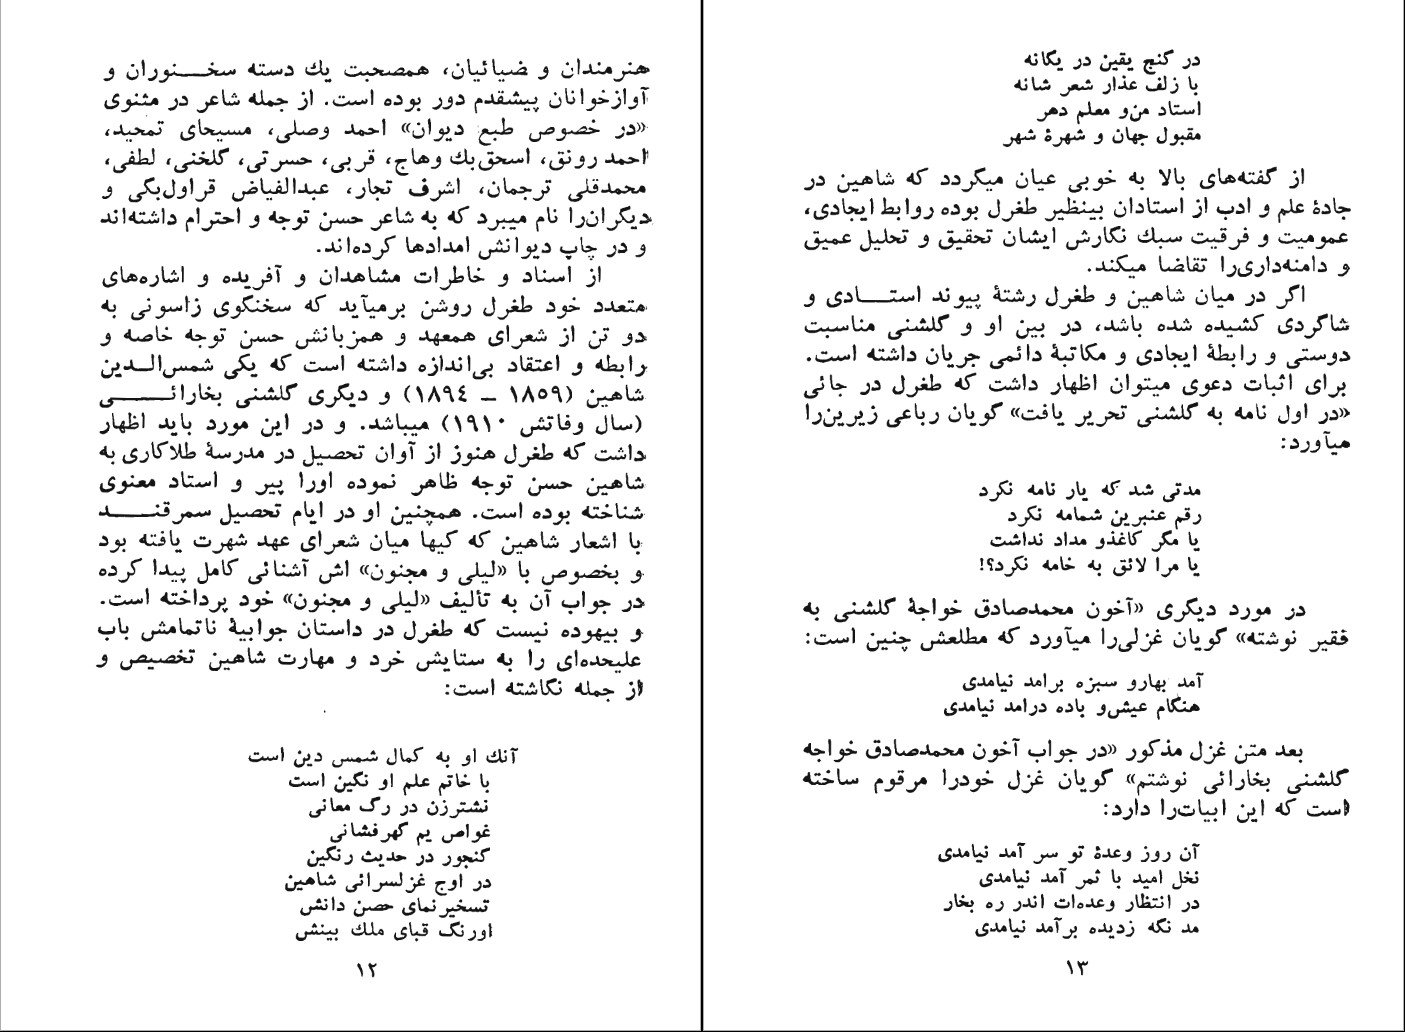 هنرمندان و ضیائیان، همصحبت یك دسته سخنوران و
آوازخوانان پیشقدم دور بوده است. از جمله شاعر در مثنوی
«در خصوص طبع دیوان» احمد وصلی، مسیحای تمحید،
احمد رونق، اسحق‌بك وهاج، قربی، حسرتی، گلخنی، لطفی،
محمدقلی ترجمان، اشرف تجار، عبدالفیاض قراول‌بگی و
دیگران‌را نام میبرد که به شاعر حسن توجه و احترام داشته‌اند
و در چاپ دیوانش امدادها کرده‌اند.
از اسناد و خاطرات مشاهدان و آفریده و اشاره‌های
متعدد خود طغرل روشن برمیآید که سخنگوی زاسونی به
دو تن از شعرای همعهد و همزبانش حسن توجه خاصه و
رابطه و اعتقاد بی‌اندازه داشته است که یکی شمس‌الدین
شاهین (۱۸۵۹ – ۱۸۹٤) و دیگری گلشنی بخارائی
(سال وفاتش ۱۹۱۰) میباشد. و در این مورد باید اظهار
داشت که طغرل هنوز از آوان تحصیل در مدرسهٔ طلاکاری به
شاهین حسن توجه ظاهر نموده اورا پیر و استاد معنوی
شناخته بوده است. همچنین او در ایام تحصیل سمرقند
با اشعار شاهین که کیها میان شعرای عهد شهرت یافته بود
و بخصوص با «لیلی و مجنون» اش آشنائی کامل پیدا کرده
در جواب آن به تألیف «لیلی و مجنون» خود پرداخته است.
و بیهوده نیست که طغرل در داستان جوابیهٔ ناتمامش باب
علیحده‌ای را به ستایش خرد و مهارت شاهین تخصیص و
از جمله نگاشته است:
آنك او به کمال شمس دین است
با خاتم علم او نگین است
نشترزن در رگ معانی
غواص یم گهرفشانی
گنجور در حدیث رنگین
در اوج غزلسرائی شاهین
تسخیرنمای حصن دانش
اورنگ قبای ملك بینش
۱۲
در گنج یقین در یگانه
با زلف عذار شعر شانه
استاد من‌و معلم دهر
مقبول جهان و شهرهٔ شهر
از گفته‌های بالا به خوبی عیان میگردد که شاهین در
جادهٔ علم و ادب از استادان بینظیر طغرل بوده روابط ایجادی،
عمومیت و فرقیت سبك نگارش ایشان تحقیق و تحلیل عمیق
و دامنه‌داری‌را تقاضا میکند.
اگر در میان شاهین و طغرل رشتهٔ پیوند استادی و
شاگردی کشیده شده باشد، در بین او و گلشنی مناسبت
دوستی و رابطهٔ ایجادی و مکاتبهٔ دائمی جریان داشته است.
برای اثبات دعوی میتوان اظهار داشت که طغرل در جائی
«در اول نامه به گلشنی تحریر یافت» گویان رباعی زیرین‌را
میآورد:
مدتی شد که یار نامه نکرد
رقم عنبرین شمامه نکرد
یا مگر کاغذو مداد نداشت
یا مرا لائق به خامه نکرد؟!
در مورد دیگری «آخون محمدصادق خواجهٔ گلشنی به
فقیر نوشته» گویان غزلی‌را میآورد که مطلعش چنین است:
آمد بهارو سبزه برامد نیامدی
هنگام عیش‌و باده درامد نیامدی
بعد متن غزل مذکور «در جواب آخون محمدصادق خواجه
گلشنی بخارائی نوشتم» گویان غزل خودرا مرقوم ساخته
است که این ابیات‌را دارد:
آن روز وعدهٔ تو سر آمد نیامدی
نخل امید با ثمر آمد نیامدی
در انتظار وعده‌ات اندر ره بخار
مد نگه زدیده برآمد نیامدی
۱۳